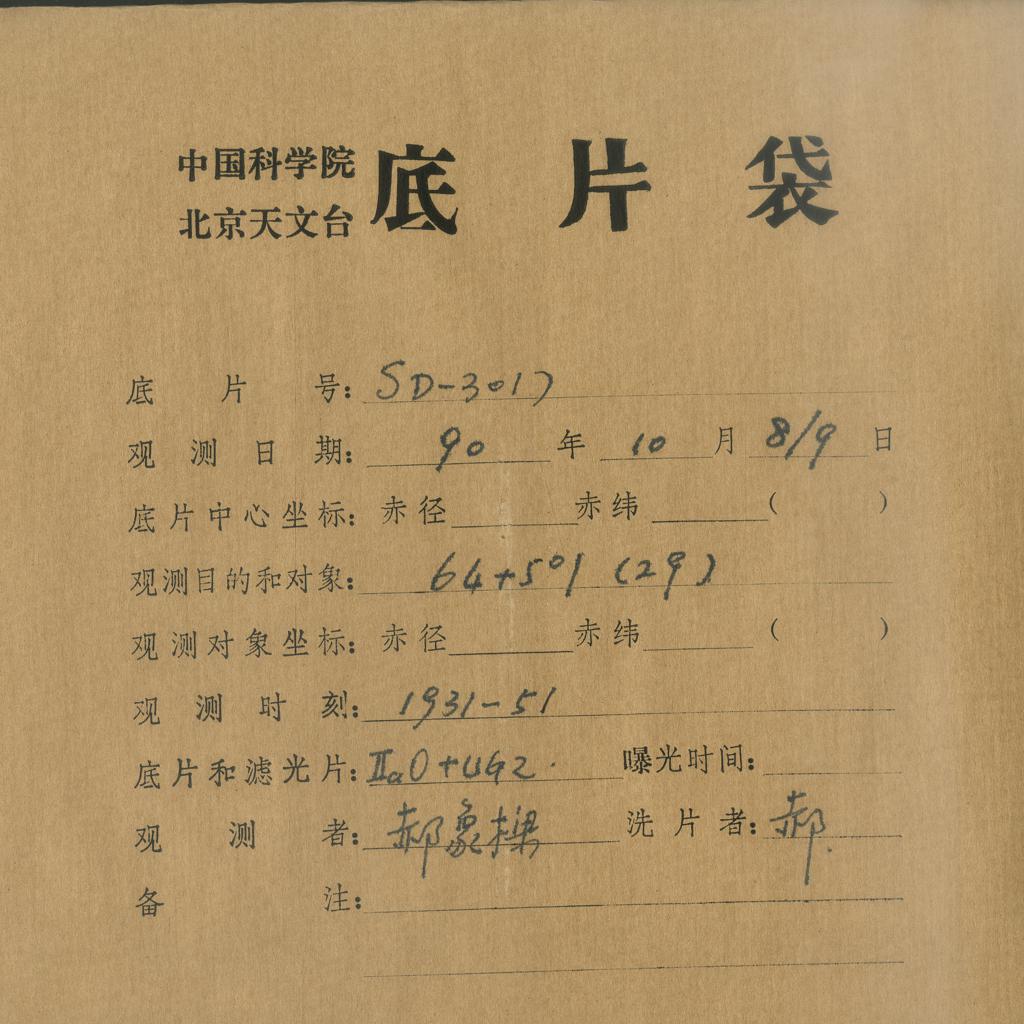 中国科学院
北京天文台
底片袋
底片号：SD-3017
观测日期：90年10月8/9日
底片中心坐标：赤径 赤纬 （ ）
观测目的和对象：64+501 (29)
观测对象坐标：赤径 赤纬 （ ）
观测时刻：1931-51
底片和滤光片：IIaO+UG2. 曝光时间：
观测者：郝象樑 洗片者：郝.
备注：